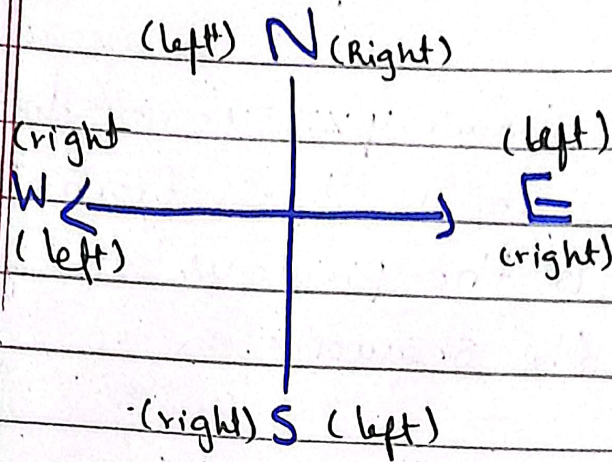 (left) N (Right)
(right (left)
W E
(left) (right)
(right) S (left)